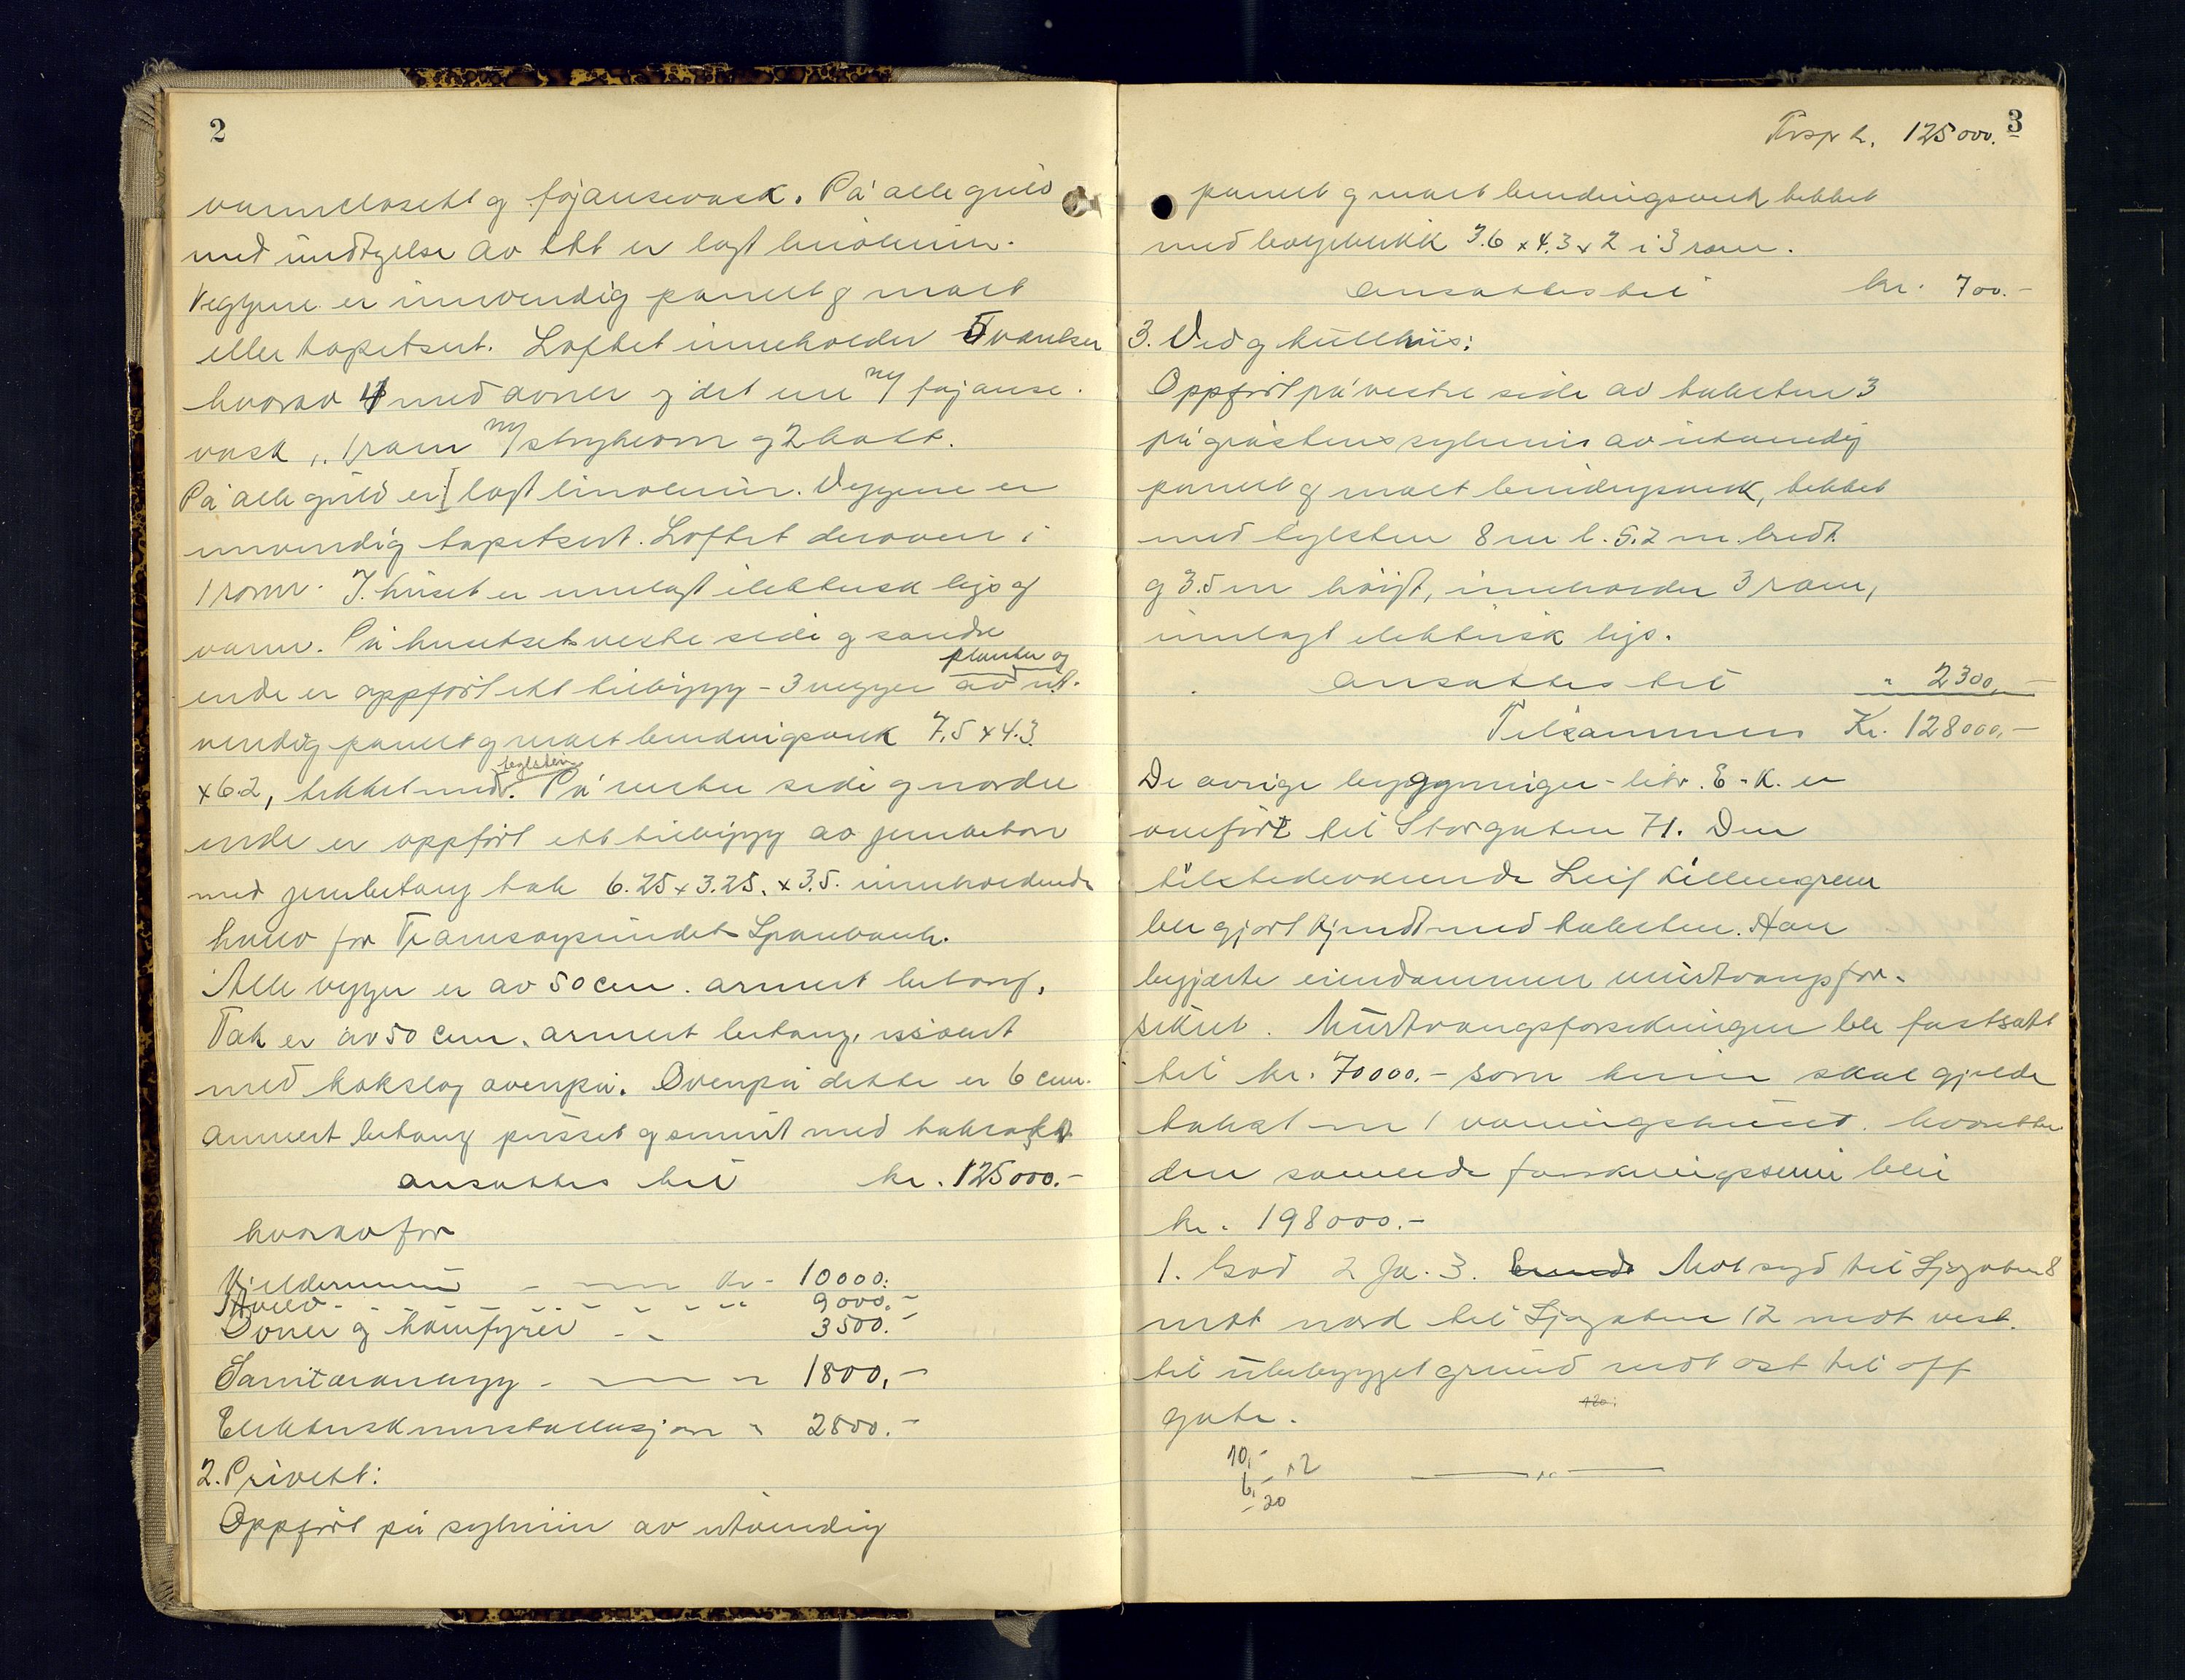 2
vannklosett og fajansevask. På alle gulv
med undtagelse av ett er lagt linoleum.
Veggene er innvendig panelt og malt
eller tapetsert. Loftet inneholder 5 værelser
hvorav 4 med ovner og det ene m/ fajanse-
vask, 1 rom m/ strykeovn og 2 kott.
På alle gulv er lagt linoleum. Veggene er
innvendig tapetsert. Loftet derover i
1 rom. I huset er innlagt elektrisk lys og
varm. På husets vestre side og søndre
planker og
ende er oppført ett tilbygg - 3 vegger av ut-
vendig panelt og malt bindingsverk 7,5 x 4.3
teglsten
x 6.2, tekket med. På vestre side og nordre
ende er oppført ett tilbygg av jernbeton
med jernbetong tak 6.25 x 3.25. x 3.5. inneholdende
hvelv for Tromsøysundets Sparebank.
Alle vegger er av 50 cm. armert betong.
Tak er av 50 cm. armert betong, isolert
med kokslag ovenpå. Ovenpå dette er 6 cm.
armert betong pusset og smurt med
ansattes til kr. 125000.-
hvorav for
Kjeldermur Kr. 10000.
Hvelv - - - - - - - - " 9000.-
Ovner og komfyrer - - 3500.-
Sanitæranlegg - " 1800,-
Elektrisk innstallasjon " 2800.-
2. Privett:
Oppført på sylmur av utvendig
3
Trspr kr. 125000.
panelt og malt bindingsverk tekket
med bølgeblikk 3.6 x 4.3 x 2 i 3 rom.
ansattes til kr. 700.-
3. Ved og kullhus:
Oppført på vestre side av takstnr 3
på gråstens sylmur av utvendig
panelt og malt bindingsverk, tekket
med teglsten 8 m l. 5.2 m. bredt.
og 3.5 m høigt, inneholder 3 rom,
innlagt elektrisk lys.
ansattes til " 2300,-
Tilsammen Kr. 128000,-
De øvrige bygninger - litr. E - K. er
overført til Storgaten 71. Den
tilstedeværende Leif Killengreen
ble gjort kjendt med taksten. Han
begjærte eiendommen murtvangsfor-
sikret. Murtvangsforsikringen ble fastsatt
til kr. 70000.- som kun skal gjelde
takst nr 1 våningshuset. hvoretter
den samlede forsikringssum blir
kr. 198000.-
1. God 2 Ja. 3. Mot syd til Sjøgaten 8
mot nord til Sjøgaten 12 mot vest
til ubebygget grund mot ost til off
gate.
120.
10,-
6,- 12
20